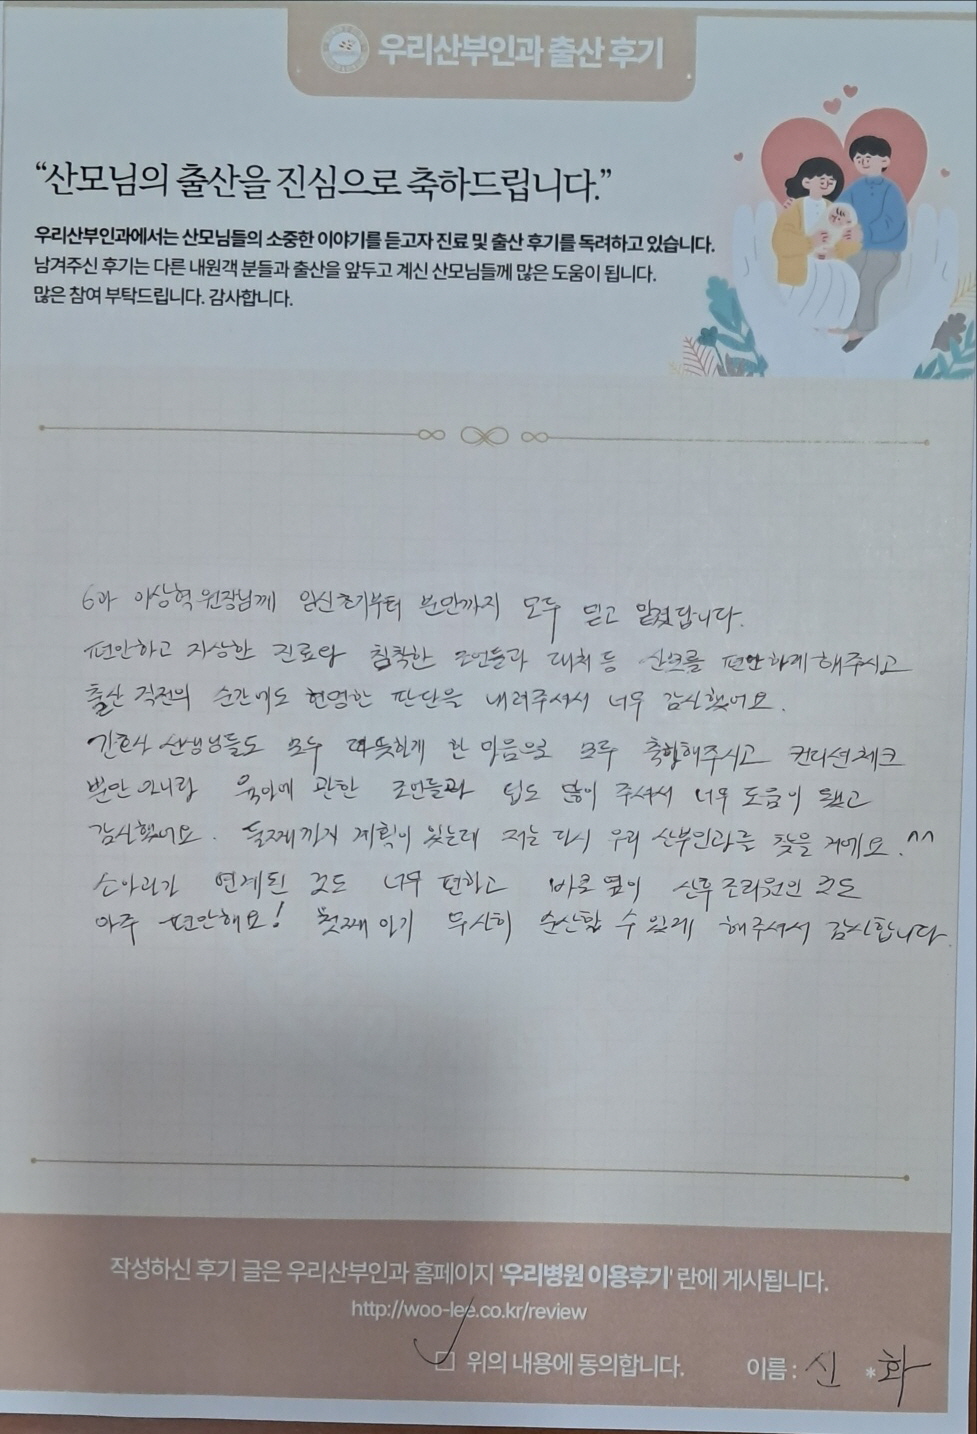 우리산부인과 출산 후기
“산모님의 출산을 진심으로 축하드립니다.”
우리산부인과에서는 산모님들의 소중한 이야기를 듣고자 진료 및 출산 후기를 독려하고 있습니다.
남겨주신 후기는 다른 내원객 분들과 출산을 앞두고 계신 산모님들께 많은 도움이 됩니다.
많은 참여 부탁드립니다. 감사합니다.
6과 이상혁 원장님께 임신초기부터 분만까지 모두 믿고 맡겼답니다.
편안하고 자상한 진료와 침착한 조언들과 대처 등 산모를 편안하게 해주시고
출산 직전의 순간에도 현명한 판단을 내려주셔서 너무 감사했어요.
간호사 선생님들도 모두 따뜻하게 한 마음으로 모두 축하해주시고 컨디션체크
뿐만 아니라 육아에 관한 조언들과 팁도 많이 주셔서 너무 도움이 됐고
감사했어요. 둘째까지 계획이 있는데 저는 다시 우리 산부인과를 찾을 거예요.^^
소아과가 연계된 것도 너무 편하고 바로 옆이 산후조리원인 것도
아주 편안해요! 첫째 아기 무사히 순산할 수 있게 해주셔서 감사합니다.
작성하신 후기 글은 우리산부인과 홈페이지 '우리병원 이용후기' 란에 게시됩니다.
http://woo-lee.co.kr/review
위의 내용에 동의합니다. 이름 : 신 * 화